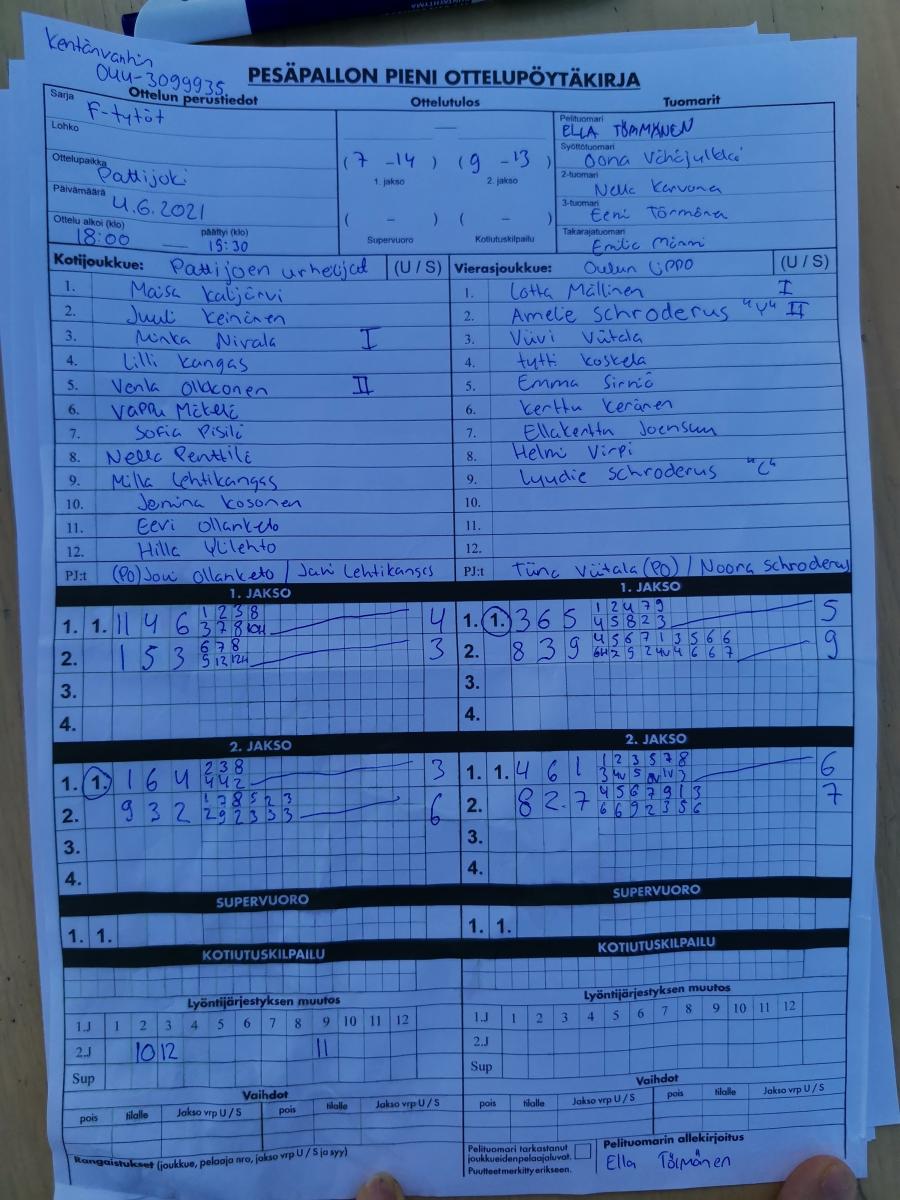 Kentänvanhin
044-3099935
PESÄPALLON PIENI OTTELUPÖYTÄKIRJA
Ottelun perustiedot Ottelutulos Tuomarit
Sarja F-tytöt
Lohko
Ottelupaikka Pattijoki
Päivämäärä 4.6.2021
Ottelu alkoi (klo) päättyi (klo)
18:00 — 19:30
(7 - 14) (9 - 13)
1. jakso 2. jakso
( - ) ( - )
Supervuoro Kotiutuskilpailu
Pelituomari ELLA TÖRMÄNEN
Syöttötuomari Oona Vähäjylkkä
2-tuomari Nella Karvonen
3-tuomari Eeni Törmänen
Takarajatuomari Emilia
Kotijoukkue: Pattijoen urheilijat (U / S)
1. Maisa Kaljärvi
2. Juuli Keinänen
3. Minka Nivala I
4. Lilli Kangas
5. Venla Olkkonen II
6. Vappu Mäkelä
7. Sofia Pisilä
8. Nella Penttilä
9. Milla Lehtikangas
10. Jemina Kosonen
11. Eevi Ollanketo
12. Hilla Ylilehto
PJ:t (PO) Joni Ollanketo / Jani Lehtikangas
Vierasjoukkue: Oulun Lippo (U / S)
1. Lotta Mällinen I
2. Amelie Schroderus "V" II
3. Viivi Viitala
4. Tytti Koskela
5. Emma Sirniö
6. Kerttu Keränen
7. Ellakerttu Joensuu
8. Helmi Virpi
9. Lyydie Schroderus "C"
10.
11.
12.
PJ:t Viitala (PO) / Noora Schroderus
1. JAKSO
1. 1. 11 4 6 1 2 3 8 4
3 7 8 10H
2. 1 5 3 6 7 8 3
9 12 12H
3.
4.
1. JAKSO
1. 1. 3 6 5 1 2 4 7 9 5
4 5 8 2 3
2. 8 3 9 4 5 6 7 1 3 5 6 6 9
6H 2 9 2 4V 4 6 6 7
3.
4.
2. JAKSO
1. 1. 1 6 4 2 3 8 3
4 4 2
2. 9 3 2 1 7 8 5 2 3 6
2 9 2 3 3 3
3.
4.
2. JAKSO
1. 1. 4 6 1 1 2 3 5 7 8 6
2. 8 2. 7 4 5 6 7 9 1 3 7
6 6 9 2 3 5 6
3.
4.
SUPERVUORO
1. 1.
SUPERVUORO
1. 1.
KOTIUTUSKILPAILU
KOTIUTUSKILPAILU
Lyöntijärjestyksen muutos
1.J 1 2 3 4 5 6 7 8 9 10 11 12
2.J 10 12 11
Sup
Vaihdot
pois tilalle Jakso vrp U / S pois tilalle Jakso vrp U / S
Rangaistukset (joukkue, pelaaja nro, jakso vrp U / S ja syy)
Lyöntijärjestyksen muutos
1.J 1 2 3 4 5 6 7 8 9 10 11 12
2.J
Sup
Vaihdot
pois tilalle Jakso vrp U / S pois tilalle Jakso vrp U / S
Pelituomari tarkastanut
joukkueiden pelaajaluvat.
Puutteet merkitty erikseen.
Pelituomarin allekirjoitus
Ella Törmänen